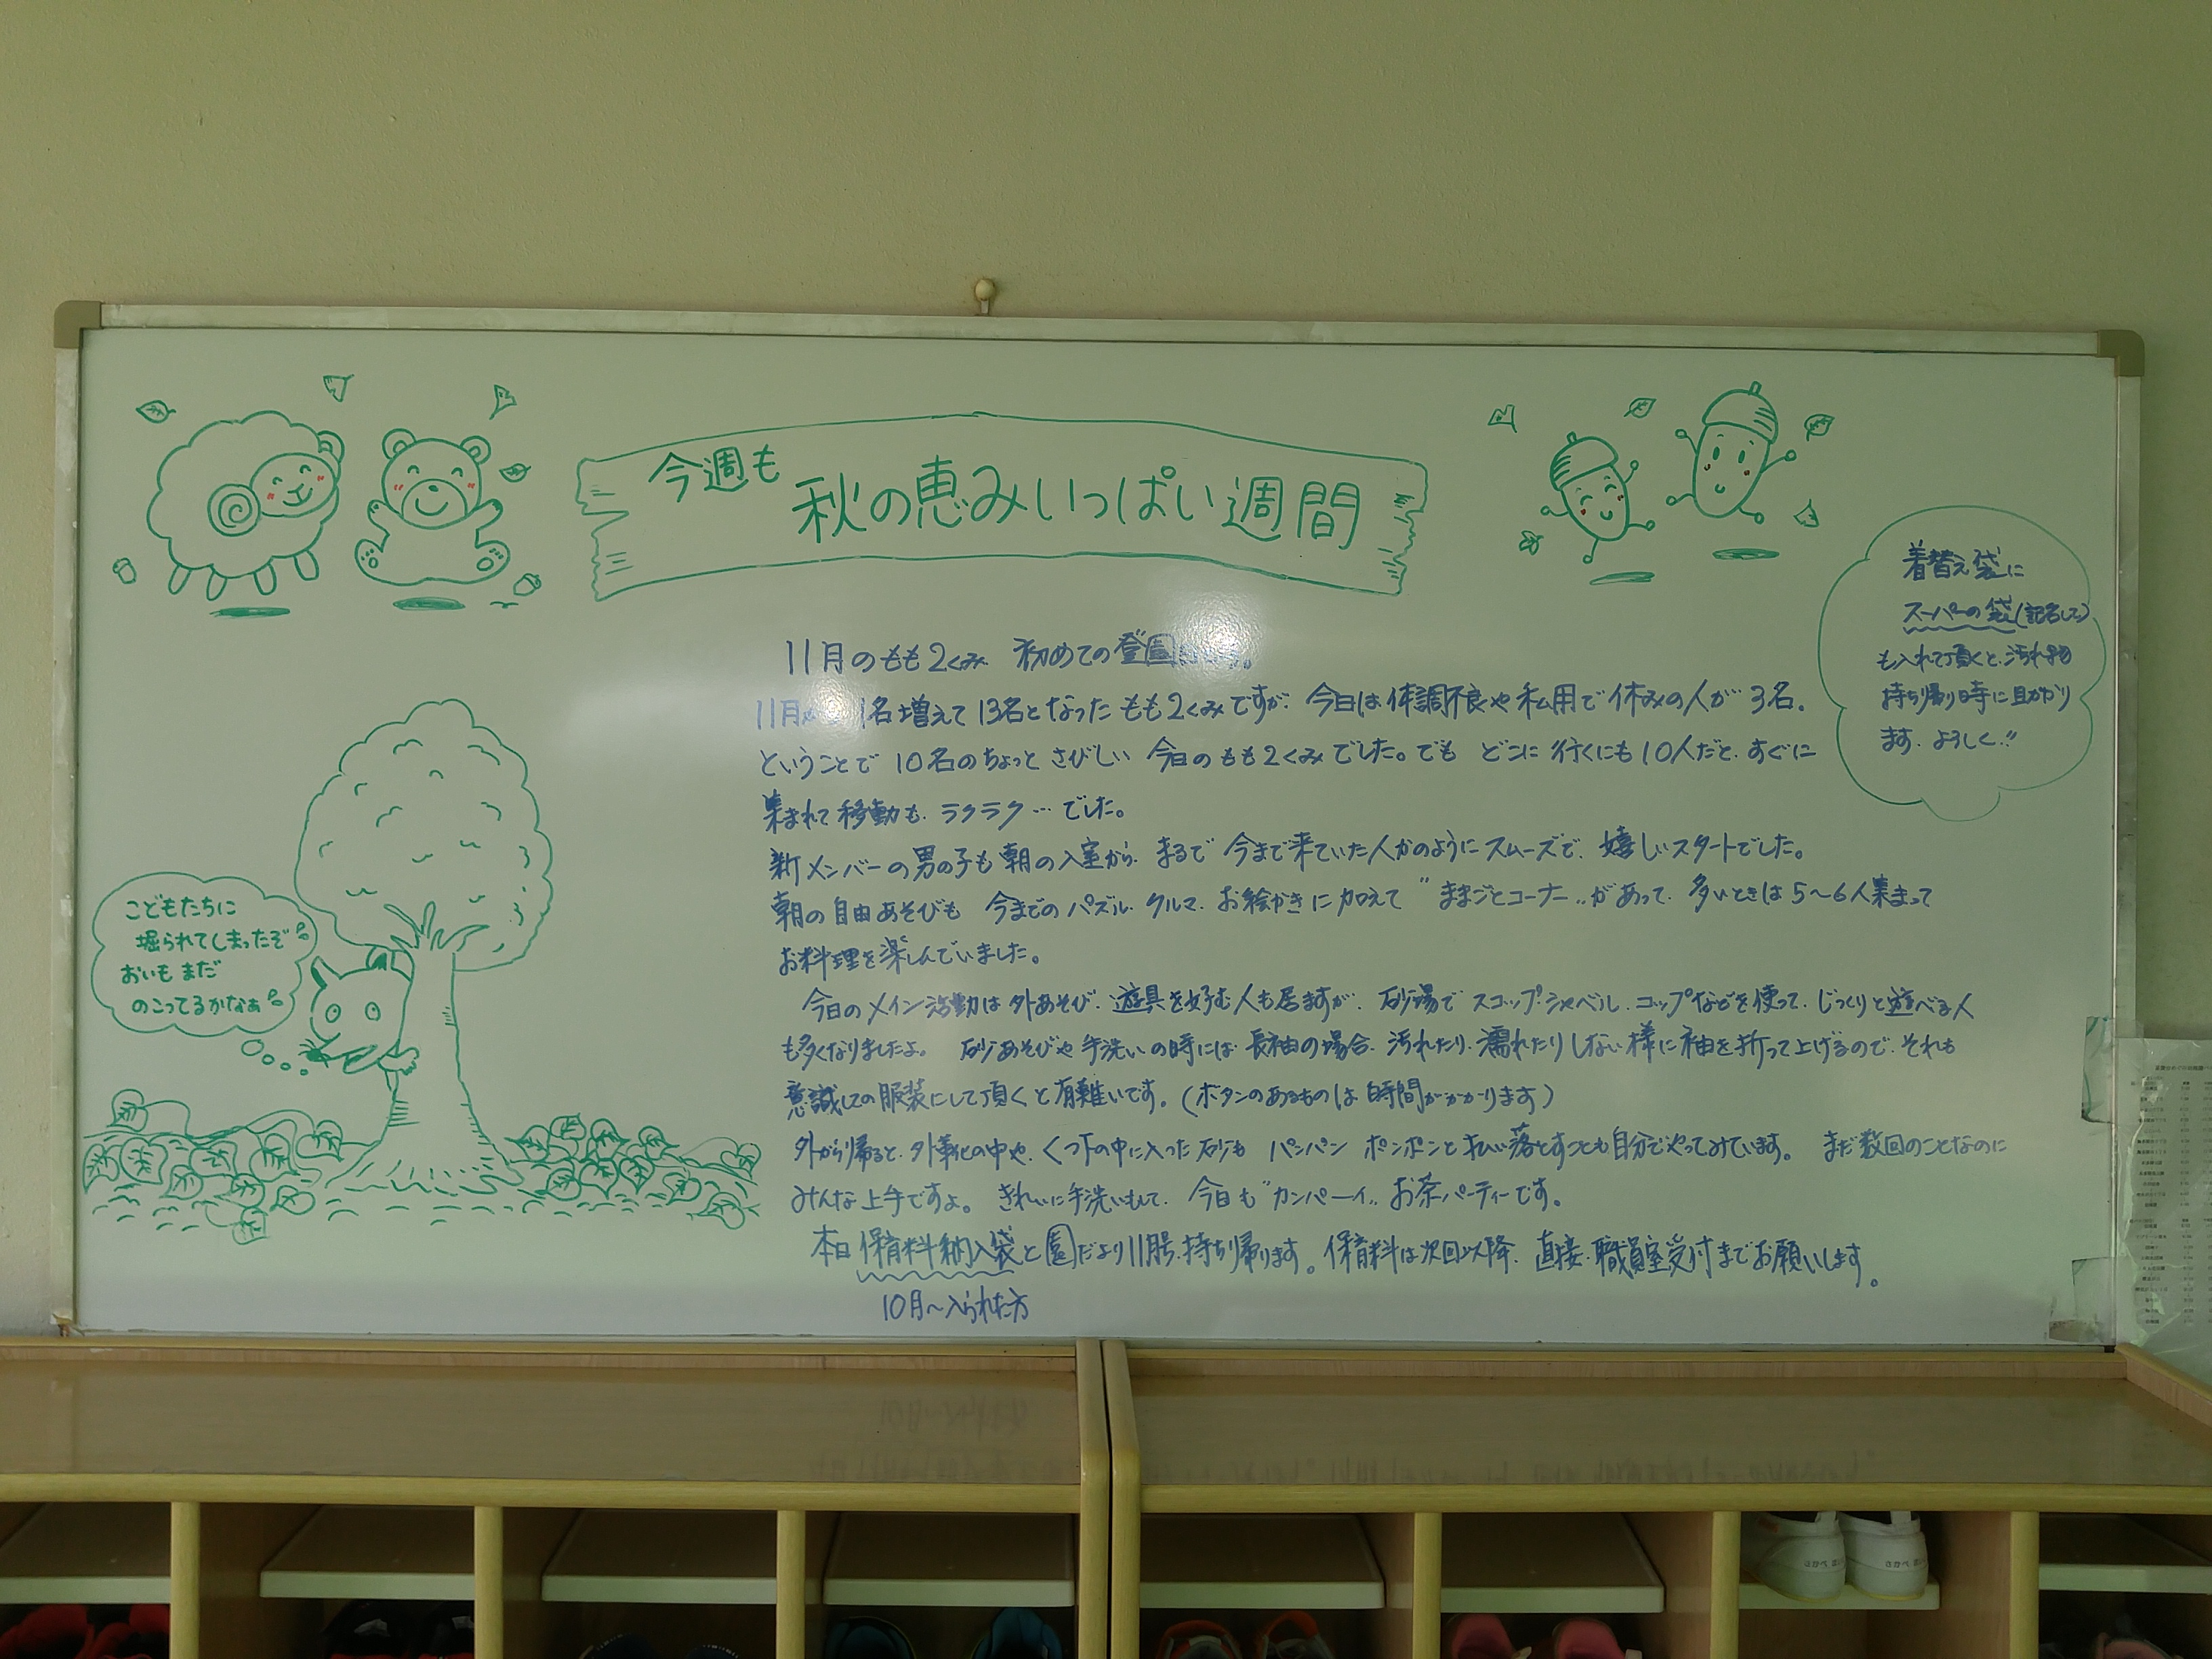 今週も
秋の恵みいっぱい週間
着替え袋に
スーパーの袋(記名して)
も入れて頂くと、汚れ物
持ち帰り時に助かり
ます。よろしく!!
11月のもも2くみ 初めての登園日です。
11月から1名増えて13名となったもも2くみですが、今日は体調不良や私用で休みの人が3名。
ということで10名のちょっとさびしい 今日のもも2くみでした。でも どこに行くにも10人だと、すぐに
集まれて移動も、ラクラク…でした。
新メンバーの男の子も朝の入室から、まるで 今まで来ていた人かのようにスムーズで、嬉しいスタートでした。
朝の自由あそびも 今までのパズル、クルマ、お絵かきに加えて "ままごとコーナー"があって、多いときは5〜6人集まって
お料理を楽しんでいました。
今日のメイン活動は外あそび、遊具を好む人も居ますが、砂場でスコップ、シャベル、コップなどを使って、じっくりと遊べる人
も多くなりましたよ。 砂あそびや手洗いの時には、長袖の場合、汚れたり、濡れたりしない様に袖を折って上げるので、それも
意識しての服装にして頂くと有難いです。(ボタンのあるものは時間がかかります)
外から帰ると、外靴の中や、くつ下の中に入った砂も パンパン ポンポンと払い落とすことも自分でやってみています。 まだ数回のことなのに
みんな上手ですよ。 きれいに手洗いもして、今日も"カンパーイ" お茶パーティーです。
本日 保育料納入袋と園だより11月号、持ち帰ります。保育料は次回以降、直接、職員室受付までお願いします。
10月〜入られた方
こどもたちに
掘られてしまったぞ
おいも まだ
のこってるかなぁ